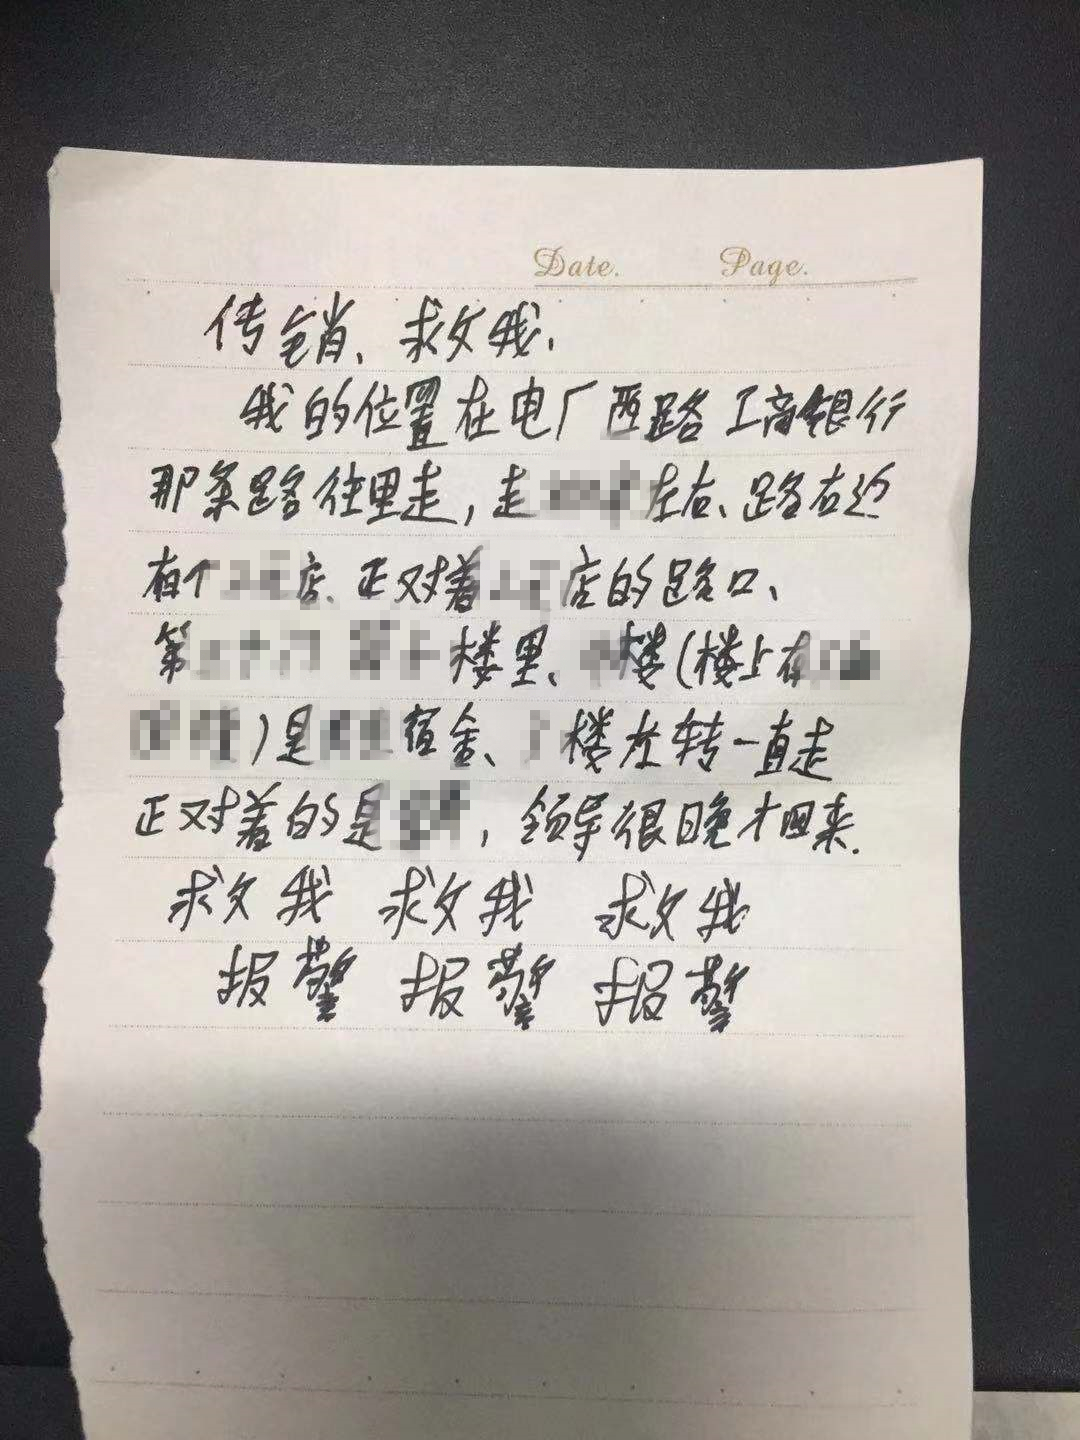 Date. Page.
传销、救我.
我的位置在电厂西路工商银行
那条路往里走,走左右、路右边
有个店、正对着店的路口、
第楼里、楼(楼上有
)是宿舍、楼左转一直走
正对着的是,领导很晚才回来.
救我 救我 救我
报警 报警 报警